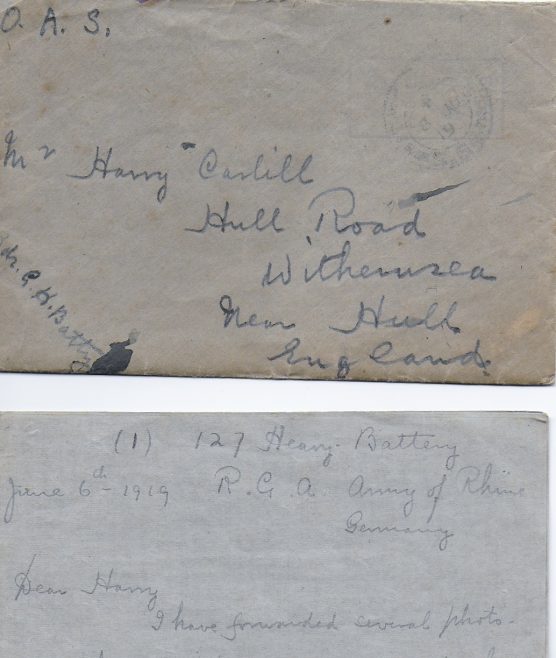 O. A. S.
Mr Harry Carlill
Hull Road
Withernsea
Near Hull
England.
G. H. Batty
(1) 127 Heavy Battery
June 6th - 1919 R. G. A. Army of Rhine
Germany
Dear Harry
I have forwarded several photo-